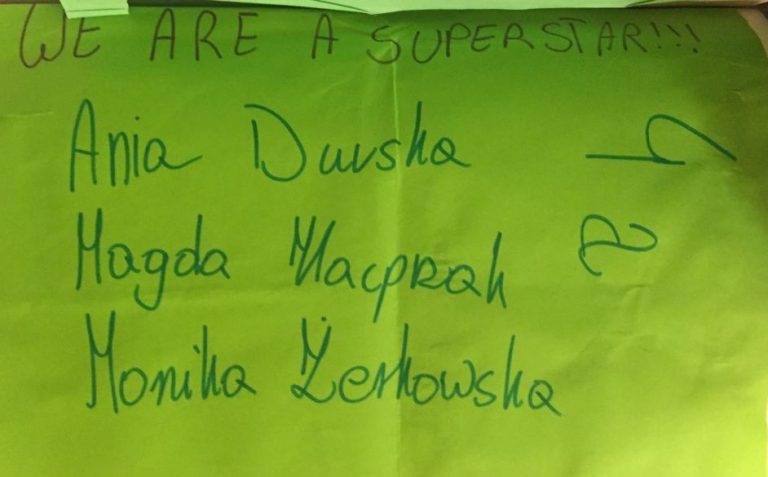 WE ARE A SUPERSTAR!!!
Ania Durska
Magda Kacprak
Monika Żerkowska